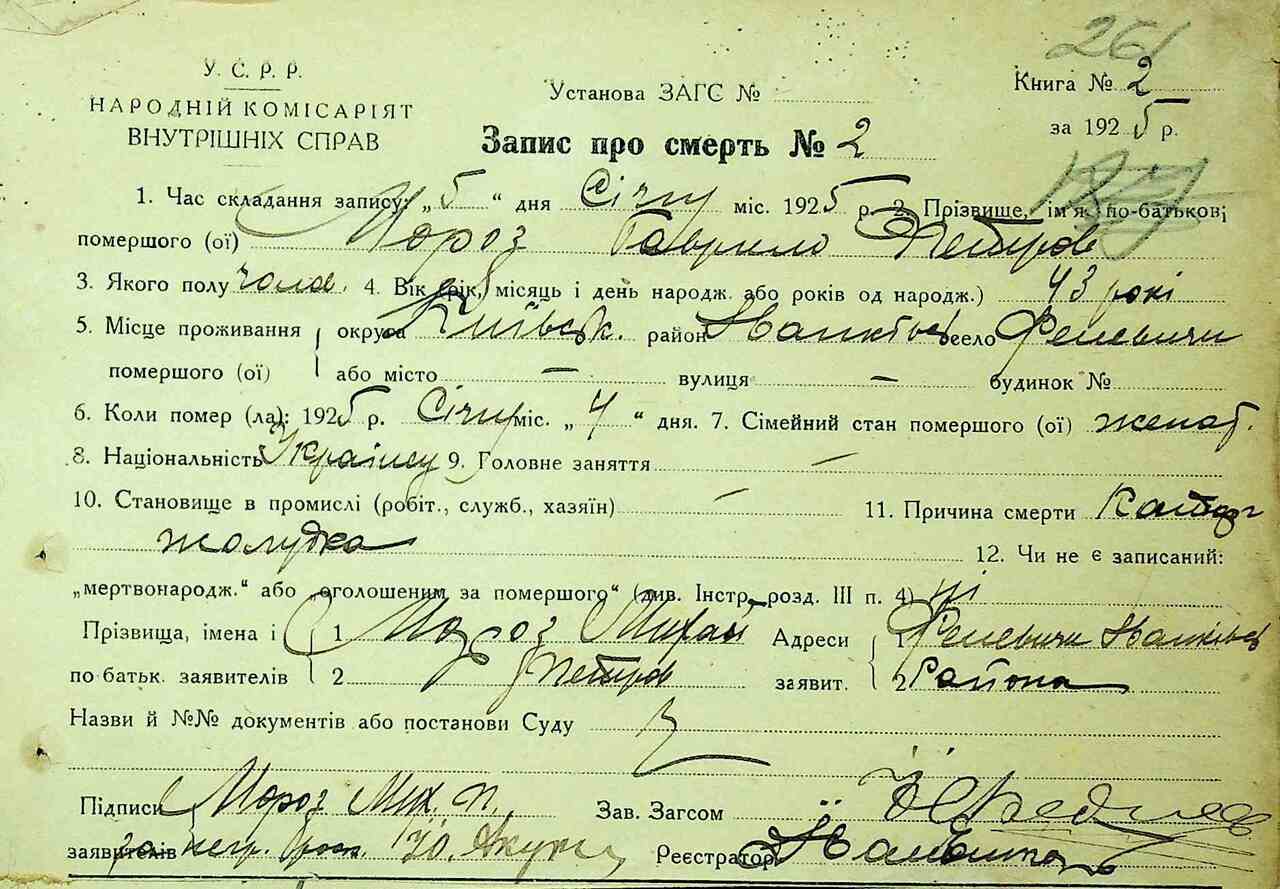 261
У. С. Р. Р.
НАРОДНІЙ КОМІСАРІЯТ
ВНУТРІШНІХ СПРАВ
Установа ЗАГС №
Книга № 2
за 1925 р.
Запис про смерть № 2
1. Час складання запису: „5“ дня Січня міс. 1925 р. 2. Прізвище, ім'я, по-батькові
помершого (ої) Мороз Гаврило Петров
3. Якого полу чолов. 4. Вік (рік, місяць і день народж. або років од народж.) 43 рокі
5. Місце проживання округа Київськ. район село
помершого (ої) або місто — вулиця — будинок №
6. Коли помер (ла): 1925 р. Січня міс. „4“ дня. 7. Сімейний стан помершого (ої) женат.
8. Національність Украінец 9. Головне заняття —
10. Становище в промислі (робіт., служб., хазяїн) — 11. Причина смерти Катар
жолудка 12. Чи не є записаний:
„мертвонародж.“ або „оголошеним за помершого“ (див. Інстр. розд. III п. 4) ні
Прізвища, імена і 1 Мороз Михай Адреси 1
по батьк. заявителів 2 Петров заявит. 2 Района
Назви й №№ документів або постанови Суду
Підписи Мороз Мих. П. Зав. Загсом
заявителів за негр. Реєстратор